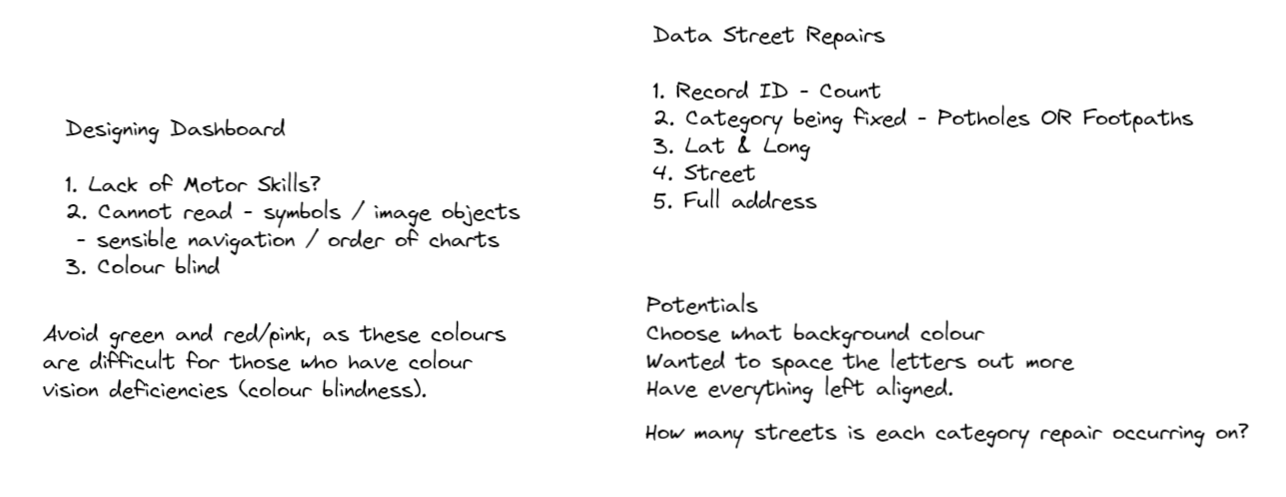 Designing Dashboard
1. Lack of Motor Skills?
2. Cannot read - symbols / image objects
- sensible navigation / order of charts
3. Colour blind
Avoid green and red/pink, as these colours
are difficult for those who have colour
vision deficiencies (colour blindness).
Data Street Repairs
1. Record ID - Count
2. Category being fixed - Potholes OR Footpaths
3. Lat & Long
4. Street
5. Full address
Potentials
Choose what background colour
Wanted to space the letters out more
Have everything left aligned.
How many streets is each category repair occurring on?